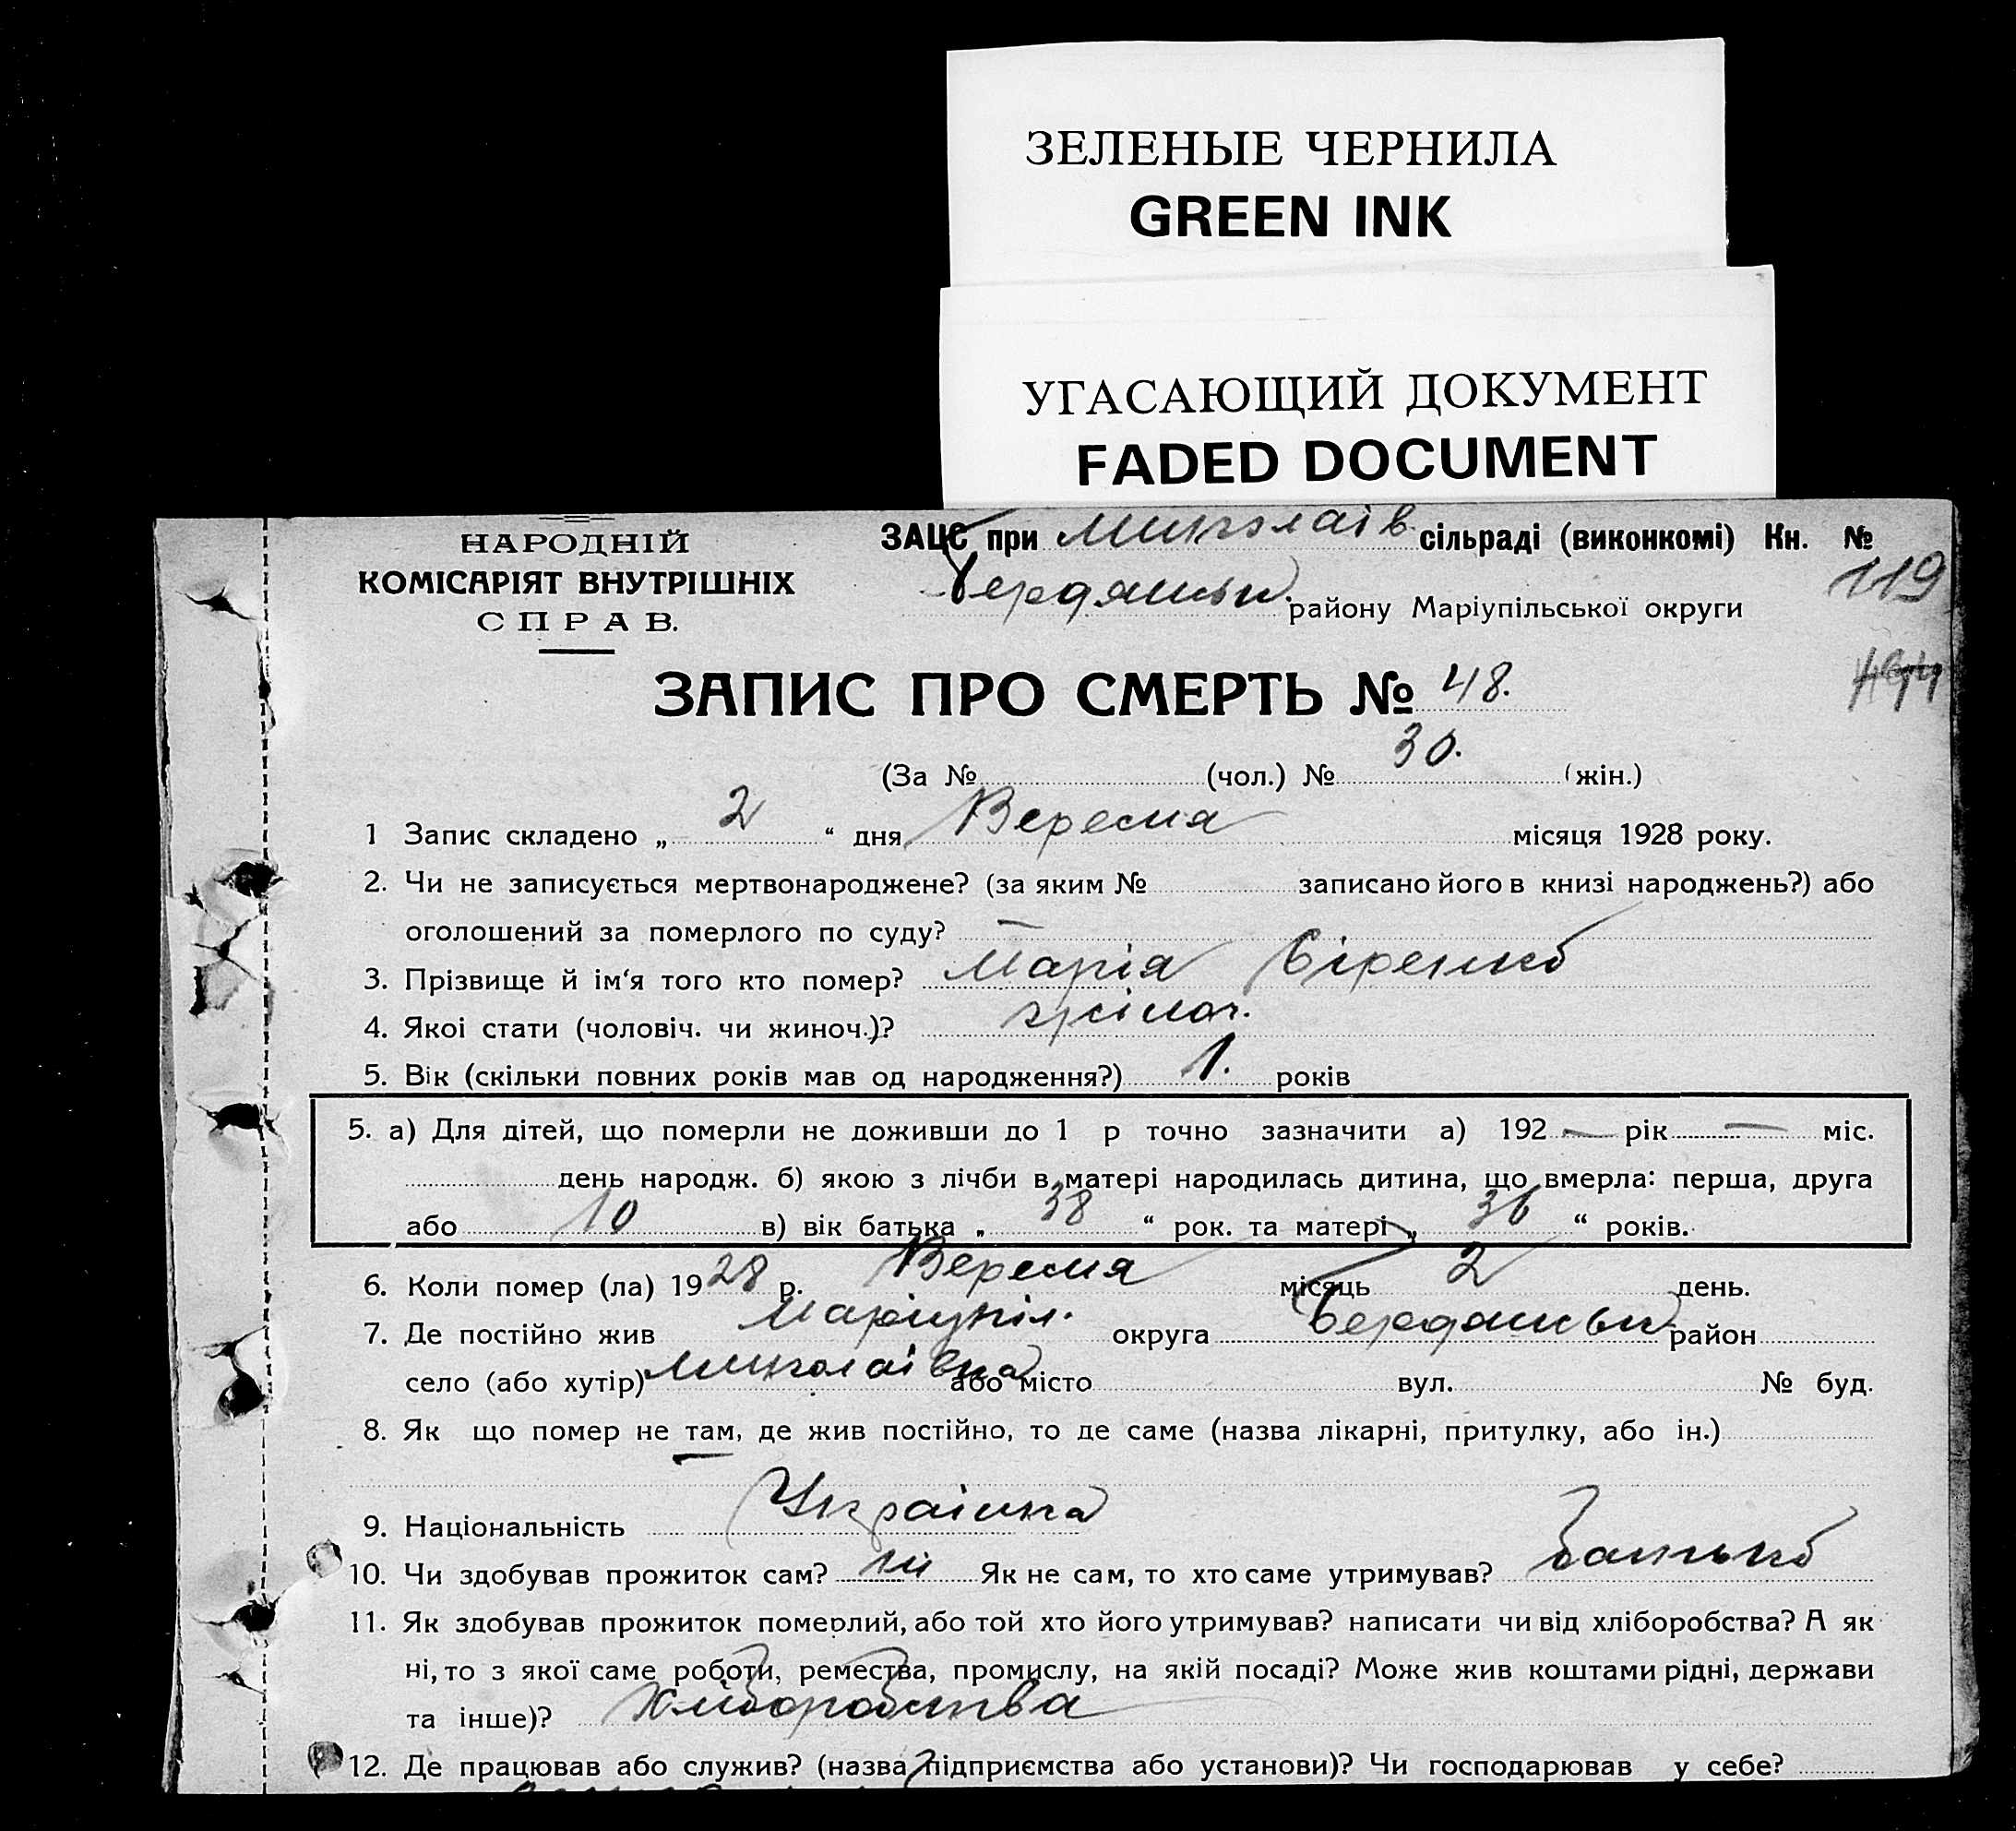 ЗЕЛЕНЫЕ ЧЕРНИЛА
GREEN INK
УГАСАЮЩИЙ ДОКУМЕНТ
FADED DOCUMENT
НАРОДНІЙ
КОМІСАРІЯТ ВНУТРІШНІХ
СПРАВ.
ЗАЦС при Миколаїв сільраді (виконкомі) Кн. №
119
Бердянськ. району Маріупільської округи
ЗАПИС ПРО СМЕРТЬ № 48.
(За № (чол.) № 30. (жін.)
1 Запис складено „ 2 “ дня Вересня місяця 1928 року.
2. Чи не записується мертвонароджене? (за яким № записано його в книзі народжень?) або
оголошений за померлого по суду? —
3. Прізвище й ім‘я того кто помер? Марія Сіренко
4. Якоі стати (чоловіч. чи жиноч.)? жіноч.
5. Вік (скільки повних років мав од народження?) 1. років
5. а) Для дітей, що померли не доживши до 1 р точно зазначити а) 192 — рік — міс.
день народж. б) якою з лічби в матері народилась дитина, що вмерла: перша, друга
або 10 в) вік батька „ 38 “ рок. та матері „ 36 “ років.
6. Коли помер (ла) 1928 р. Вересня місяць 2 день.
7. Де постійно жив Маріупіл. округа Бердянськ район
село (або хутір) Миколаівка або місто вул. № буд.
8. Як що помер не там, де жив постійно, то де саме (назва лікарні, притулку, або ін.)
—
9. Національність Украінка
10. Чи здобував прожиток сам? ні Як не сам, то хто саме утримував? батько
11. Як здобував прожиток померлий, або той хто його утримував? написати чи від хліборобства? А як
ні, то з якої саме роботи, ремества, промислу, на якій посаді? Може жив коштами рідні, держави
та інше)? Хліборобства
12. Де працював або служив? (назва підприємства або установи)? Чи господарював у себе?